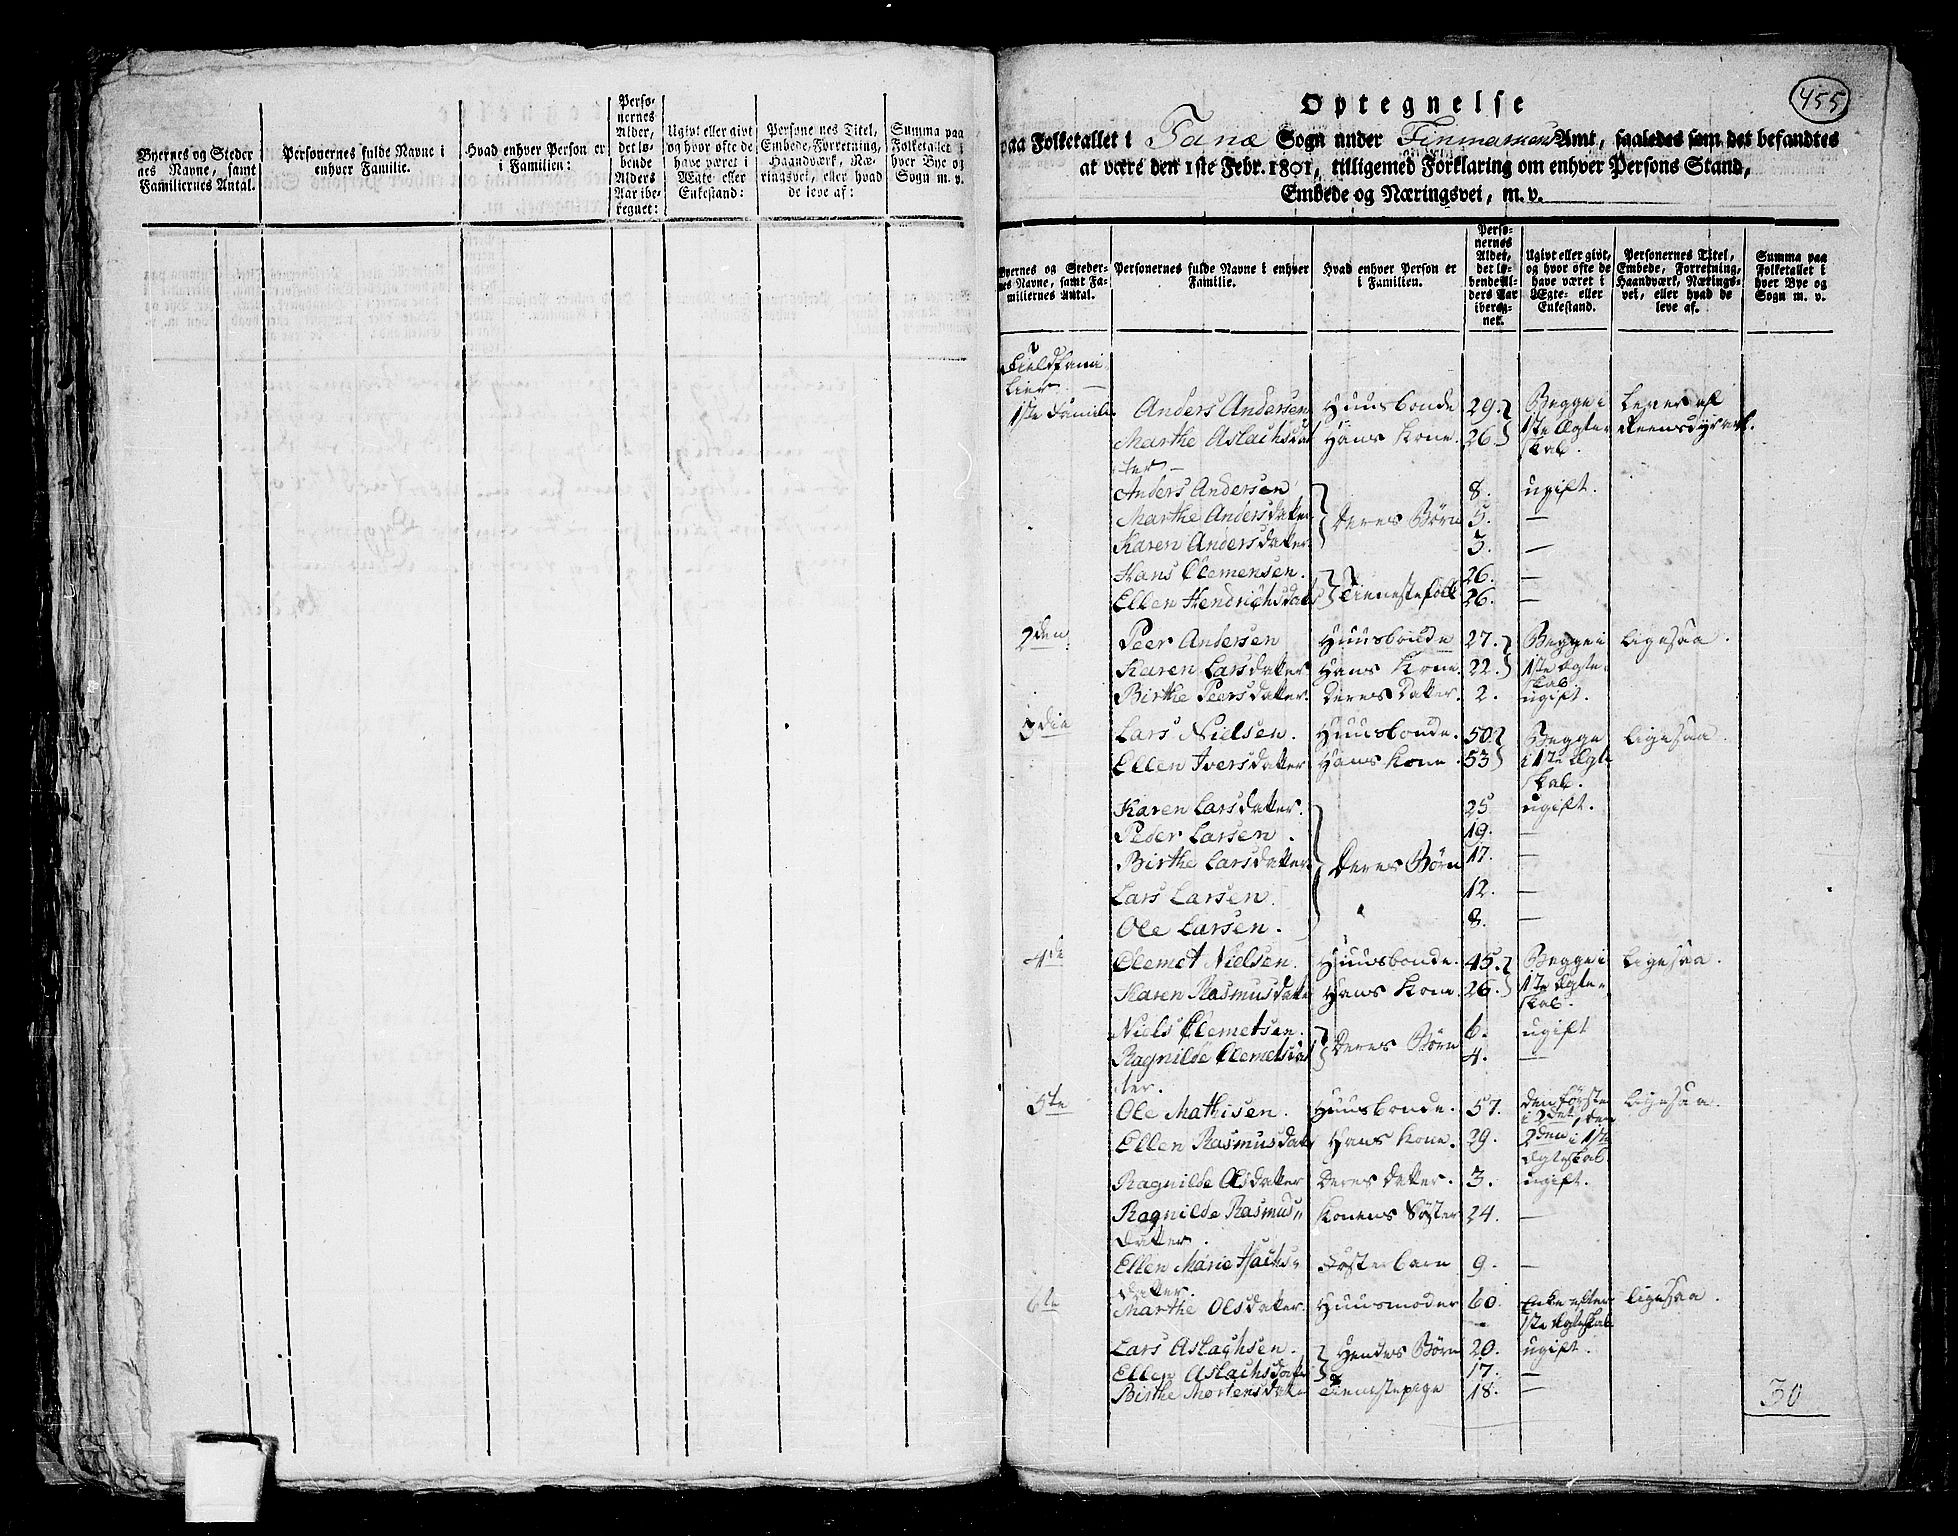 Byernes og Steder
nes Navne, samt
Familiernes Antal.
Personernes fulde Navne i
enhver Familie.
Hvad enhver Person er
i Familien:
Perso-
nernes
Alder,
det lø-
bende
Alders
Aar ibe-
regnet:
Ugivt eller givt
og hvor ofte de
have været i
Ægte- eller
Enkestand:
Persone nes Titel,
Embede, Forretning,
Haandværk, Næ-
ringsvej, eller hvad
de leve af:
Summa paa
Folketallet i
hver Bye og
Sogn m. v.
455
Optegnelse
paa Folketallet i Tanæ Sogn under Finmarkens Amt, saaledes som det befandtes
at være den 1ste Febr. 1801, tilligemed Forklaring om enhver Persons Stand,
Embede og Næringsvei, m. v.
Byernes og Steder-
nes Navne, samt Fa-
miliernes Antal.
Personernes fulde Navne i enhver
Familie.
Hvad enhver Person er
i Familien.
Perso-
nernes
Alder,
det lø-
bende Al-
ders Aar
ibereg-
net.
Ugivt eller givt,
og hvor ofte de
have været i
Ægte- eller
Enkestand.
Personernes Titel,
Embede, Forretning,
Haandværk, Nærings-
vei, eller hvad de
leve af.
Summa paa
Folketallet i
hver Bye og
Sogn m. v.
Fieldfami
lier
1ste Famile. Anders Andersen Huusbonde 29. Begge i Lever af
Marthe Aslachsda Hans Kone. 26. 1ste Ægte Reensdyravl.
ter skab.
Anders Andersen 8. ugift.
Marthe Andersdatter Deres Børn 5. —
Karen Andersdatter 3. —
Hans Clemensen. 26. —
Ellen Hendrichsdat Tienestefolk 26. —
2den. Peer Andersen Huusbonde 27. Begge i ligesaa.
Karen Larsdatter Hans Kone. 22. 1ste Ægte-
skab
Birthe Peersdatter. Deres Datter. 2. ugift.
3die Lars Nielsen. Huusbonde. 50. Begge ligesaa.
Ellen Iversdatter Hans Kone. 53 i 1ste Ægte
skab.
Karen Larsdatter. 25 ugift.
Peder Larsen. 19. —
Birthe Larsdatter. Deres Børn 17. —
Lars Larsen. 12. —
Ole Larsen. 8. —
4de Clemet Nielsen. Huusbonde. 45. Begge i ligesaa.
Karen Rasmusdatte Hans Kone. 26. 1ste Ægte-
skab.
Niels Clemetsen. Deres Børn 6. ugift
Ragnilde Clemetsda 4. —
ter.
5te Ole Mathisen. Huusbonde. 57. den første ligesaa.
i 2det, den
Ellen Rasmusdat Hans Kone. 29. 2den i 1ste
Ægteskab.
Ragnilde Olsdatter Deres Datter. 3. ugift.
Ragnilde Rasmus„ Konens Søster 24. —
datter.
Ellen Marie Isachs- Fosterbarn 9. —
datter.
6te Marthe Olsdatter. Huusmoder 60. Enke efter ligesaa.
1ste Ægteskab
Lars Aslachsen. Hendes Børn 20. ugift.
Ellen Aslachsdatte 17. —
Birthe Mortensdatte Tienestepige 18. —
30